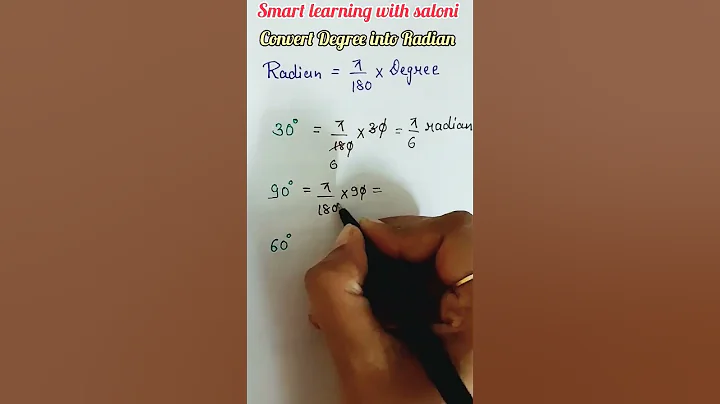 Smart learning with saloni
Convert Degree into Radian
Radian = π/180 × Degree
30° = π/180 × 30 = π/6 radian
6
90° = π/180 × 90 =
60°